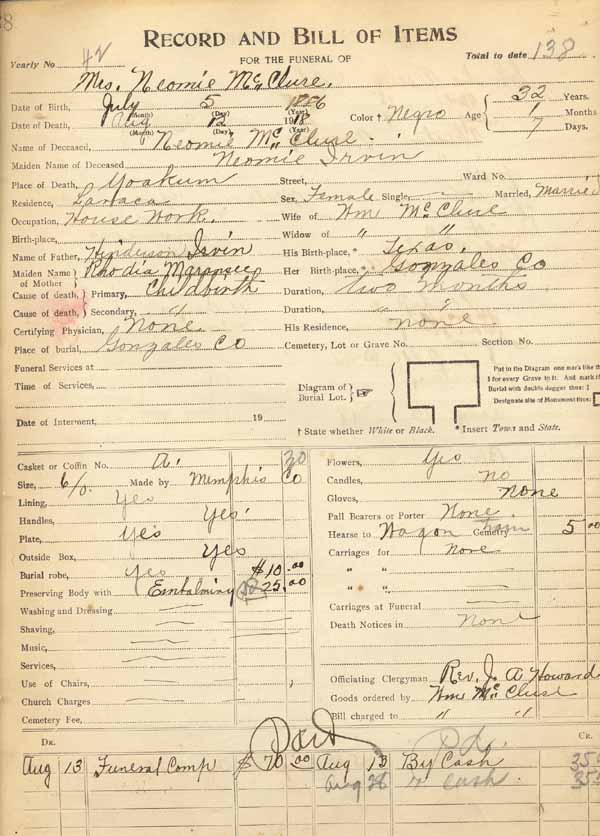 38
RECORD AND BILL OF ITEMS
Yearly No. 42 FOR THE FUNERAL OF Total to date 138
Mrs. Neomie McClure.
Date of Birth, July 5 1886 Color † Negro Age 32 Years.
(Month) (Day) (Year) 1 Months
Date of Death, Aug 12 1918 7 Days.
(Month) (Day) (Year)
Name of Deceased, Neomie McClure.
Maiden Name of Deceased Neomie Irvin
Place of Death, Yoakum Street, Ward No.
Residence, Lavaca Sex, Female Single, Married, Married
Occupation, House Work. Wife of Wm McClure
Birth-place, Widow of " "
Name of Father, Henderson Irvin His Birth-place,* Texas.
Maiden Name of Mother Rhodia Her Birth-place,* Gonzales Co
Cause of death, Primary, Childbirth Duration, two months
Cause of death, Secondary, " Duration, " "
Certifying Physician, None His Residence, none
Place of burial, Gonzales Co Cemetery, Lot or Grave No. Section No.
Funeral Services at
Time of Services,
Date of Interment, 19
Diagram of Burial Lot.
Put in the Diagram one mark like th
I for every Grave in it. And mark th
Burial with double dagger thus: ‡
Designate site of Monument thus:
† State whether White or Black. * Insert Town and State.
Casket or Coffin No. A. 30 Flowers, Yes
Size, 6/0. Made by Memphis Co Candles, no
Lining, Yes Gloves, none
Handles, Yes Pall Bearers or Porter None.
Plate, Yes Hearse to Wagon from Cemetry 5 00
Outside Box, Yes Carriages for none
Burial robe, yes $10.00 " "
Preserving Body with Embalming 25.00 " "
Washing and Dressing Carriages at Funeral
Shaving, Death Notices in None
Music,
Services,
Use of Chairs, Officiating Clergyman Rev. J. A Howard
Church Charges Goods ordered by Wm McClure
Cemetery Fee, Bill charged to " "
DR. Paid Pd. CR.
Aug 13 Funeral Comp $70.00 Aug 13 By Cash 350
Aug 28 " cash. 350